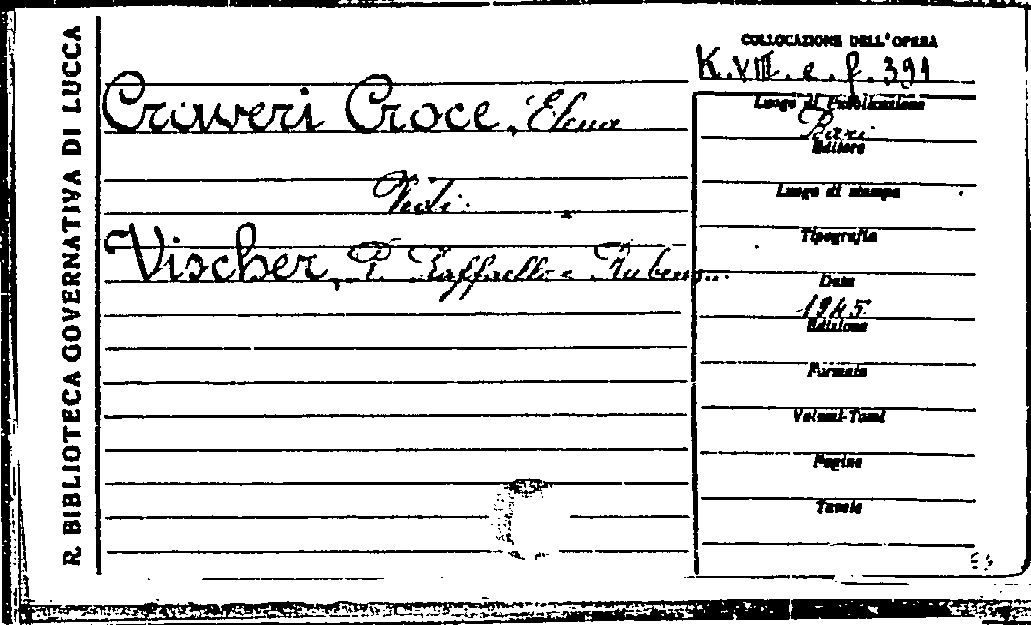 R. BIBLIOTECA GOVERNATIVA DI LUCCA
COLLOCAZIONE DELL'OPERA
K.VIII. e. f. 391
Craweri Croce, Elena
Vedi:
Vischer, P. Raffaello e Rubens...
Luogo di Pubblicazione
Bari
Editore
Luogo di stampa
Tipografia
Data
1945
Edizione
Formato
Volumi-Tomi
Pagine
Tavole